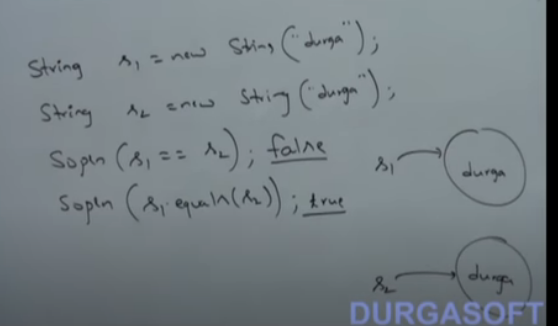 String s1 = new String ("durga");
String s2 = new String ("durga");
Sopln (s1 == s2); false
Sopln (s1.equals(s2)); true
s1 → durga
s2 → durga
DURGASOFT